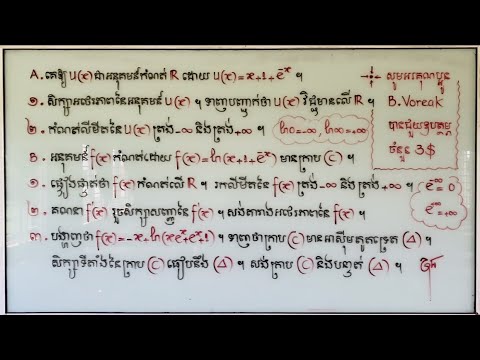 A. គេឱ្យ U(x) ជាអនុគមន៍កំណត់ ℝ ដោយ U(x) = x+1+e⁻ˣ ។
១. សិក្សាអថេរភាពនៃអនុគមន៍ U(x) ។ ទាញបញ្ជាក់ថា U(x) វិជ្ជមានលើ ℝ ។
២. កំណត់លីមីតនៃ U(x) ត្រង់ -∞ និងត្រង់ +∞ ។ ln0=-∞, ln∞=+∞
B. អនុគមន៍ f(x) កំណត់ដោយ f(x) = ln(x+1+e⁻ˣ) មានក្រាប (C) ។
១. ផ្ទៀងផ្ទាត់ថា f(x) កំណត់លើ ℝ ។ រកលីមីតនៃ f(x) ត្រង់ -∞ និងត្រង់ +∞ ។
២. គណនា f'(x) រួចសិក្សាសញ្ញានៃ f'(x) ។ សង់តារាងអថេរភាពនៃ f(x) ។
៣. បង្ហាញថា f(x) = -x+ln(xeˣ+eˣ+1) ។ ទាញថាក្រាប (C) មានអាស៊ីមតូតទ្រេត (Δ) ។
សិក្សាទីតាំងនៃក្រាប (C) ធៀបនឹង (Δ) ។ សង់ក្រាប (C) និងបន្ទាត់ (Δ) ។
សូមអរគុណប្អូន
B. Voreak
បានជួយឧបត្ថម្ភ
ចំនួន 3$
e⁻∞ = 0
e⁺∞ = +∞